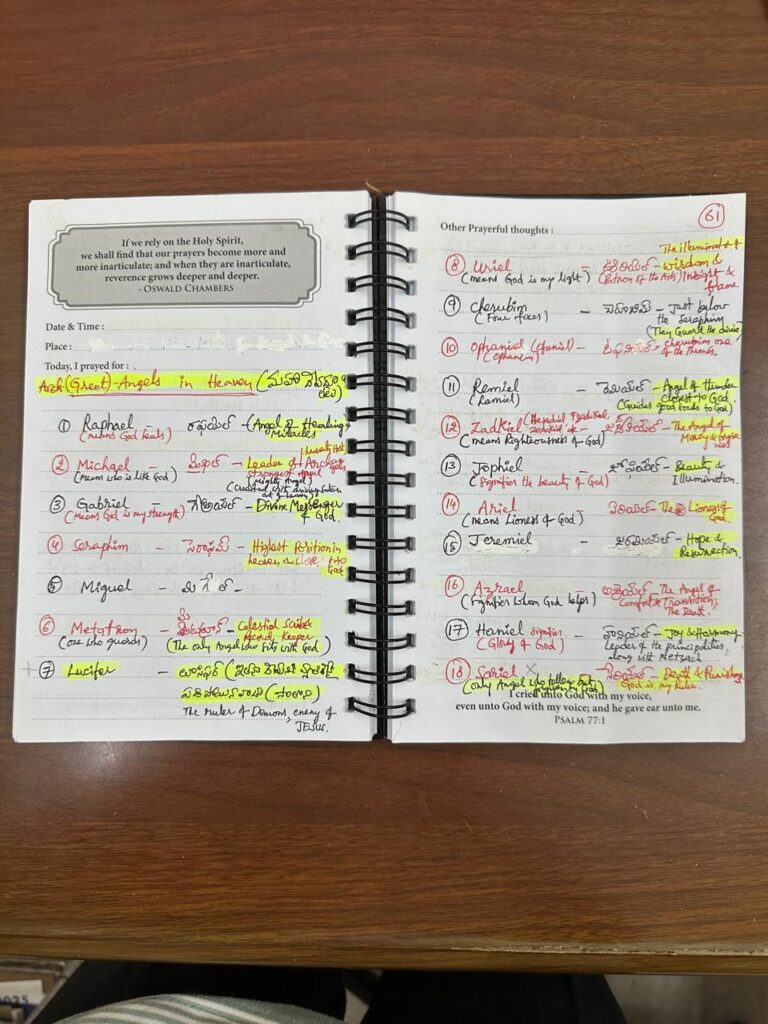 If we rely on the Holy Spirit,
we shall find that our prayers become more and
more inarticulate; and when they are inarticulate,
reverence grows deeper and deeper.
- OSWALD CHAMBERS
Date & Time :
Place :
Today, I prayed for :
Arch (Great) Angels in Heaven
① Raphael - రాఫెయేల్ - (Angel of Healing &
(means God heals) Miracles
② Michael - మిఖాయేల్ - Leader of Archangels
(Means who is like God) Strongest Angel
(Mighty Angel)
③ Gabriel - గాబ్రియేల్ - Divine Messenger
(Means God is my strength) of God.
④ Seraphim - సెరాఫిమ్ - Highest Position in
heaven & close to
God
⑤ Miguel - మిగేల్ -
⑥ Metatron - Celestial Scribe
(one who guards) Record Keeper
(The only Angel who sits with God)
⑦ Lucifer - లూసిఫర్
The Ruler of Demons, enemy of
JESUS.
61
Other Prayerful thoughts :
The illuminator of
⑧ Uriel - ఊరియేల్ - wisdom &
(means God is my light) (Patron of the Arts) Insight &
⑨ Cherubim - Just below
(Four faces) the Seraphim
(They Guard the divine
⑩ Ophaniel (Ofaniel) - Cherubim one
(Ophanim) of the
⑪ Remiel - రెమియేల్ - Angel of thunder
(Ramiel) closest to God.
(Guides good souls to God)
⑫ Zadkiel - The Angel of
(means Righteousness of God) Mercy &
⑬ Jophiel - జోఫియేల్ - Beauty &
(Signifies the beauty of God) Illumination.
⑭ Ariel - ఏరియేల్ - The Lioness of
(means Lioness of God) God
⑮ Jeremiel - జెరెమియేల్ - Hope &
Resurrection
⑯ Azrael - The Angel of
(Signifies whom God helps) Comfort & Transition,
The Death.
⑰ Haniel Signifies - హానియేల్ - Joy & Harmony
(Glory of God) Leader of the principalities,
along with Netzach
⑱ Sariel - Death & Punishing
(only Angel who God is my Ruler.
I cried unto God with my voice,
even unto God with my voice; and he gave ear unto me.
PSALM 77:1